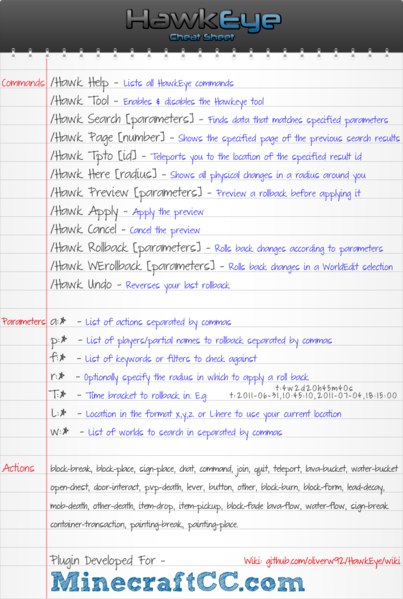 HawkEye
Cheat Sheet
Commands /Hawk Help - Lists all HawkEye commands
/Hawk Tool - Enables & disables the Hawkeye tool
/Hawk Search [parameters] - Finds data that matches specified parameters
/Hawk Page [number] - Shows the specified page of the previous search results
/Hawk Tpto [id] - Teleports you to the location of the specified result id
/Hawk Here [radius] - Shows all physical changes in a radius around you
/Hawk Preview [parameters] - Preview a rollback before applying it
/Hawk Apply - Apply the preview
/Hawk Cancel - Cancel the preview
/Hawk Rollback [parameters] - Rolls back changes according to parameters
/Hawk WErollback [parameters] - Rolls back changes in a WorldEdit selection
/Hawk Undo - Reverses your last rollback
Parameters a:* - List of actions separated by commas
p:* - List of players/partial names to rollback separated by commas
f:* - List of keywords or filters to check against
r:* - Optionally specify the radius in which to apply a roll back
t:4w2d20h45m40s
T:* - Time bracket to rollback in. E.g t:2011-06-31,10:45:10,2011-07-04,18:15:00
L:* - Location in the format x,y,z. or L:here to use your current location
w:* - List of worlds to search in separated by commas
Actions block-break, block-place, sign-place, chat, command, join, quit, teleport, lava-bucket, water-bucket
open-chest, door-interact, pvp-death, lever, button, other, block-burn, block-form, lead-decay,
mob-death, other-death, item-drop, item-pickup, block-fade lava-flow, water-flow, sign-break
container-transaction, painting-break, painting-place.
Plugin Developed For - Wiki: github.com/oliverw92/HawkEye/wiki
MinecraftCC.com